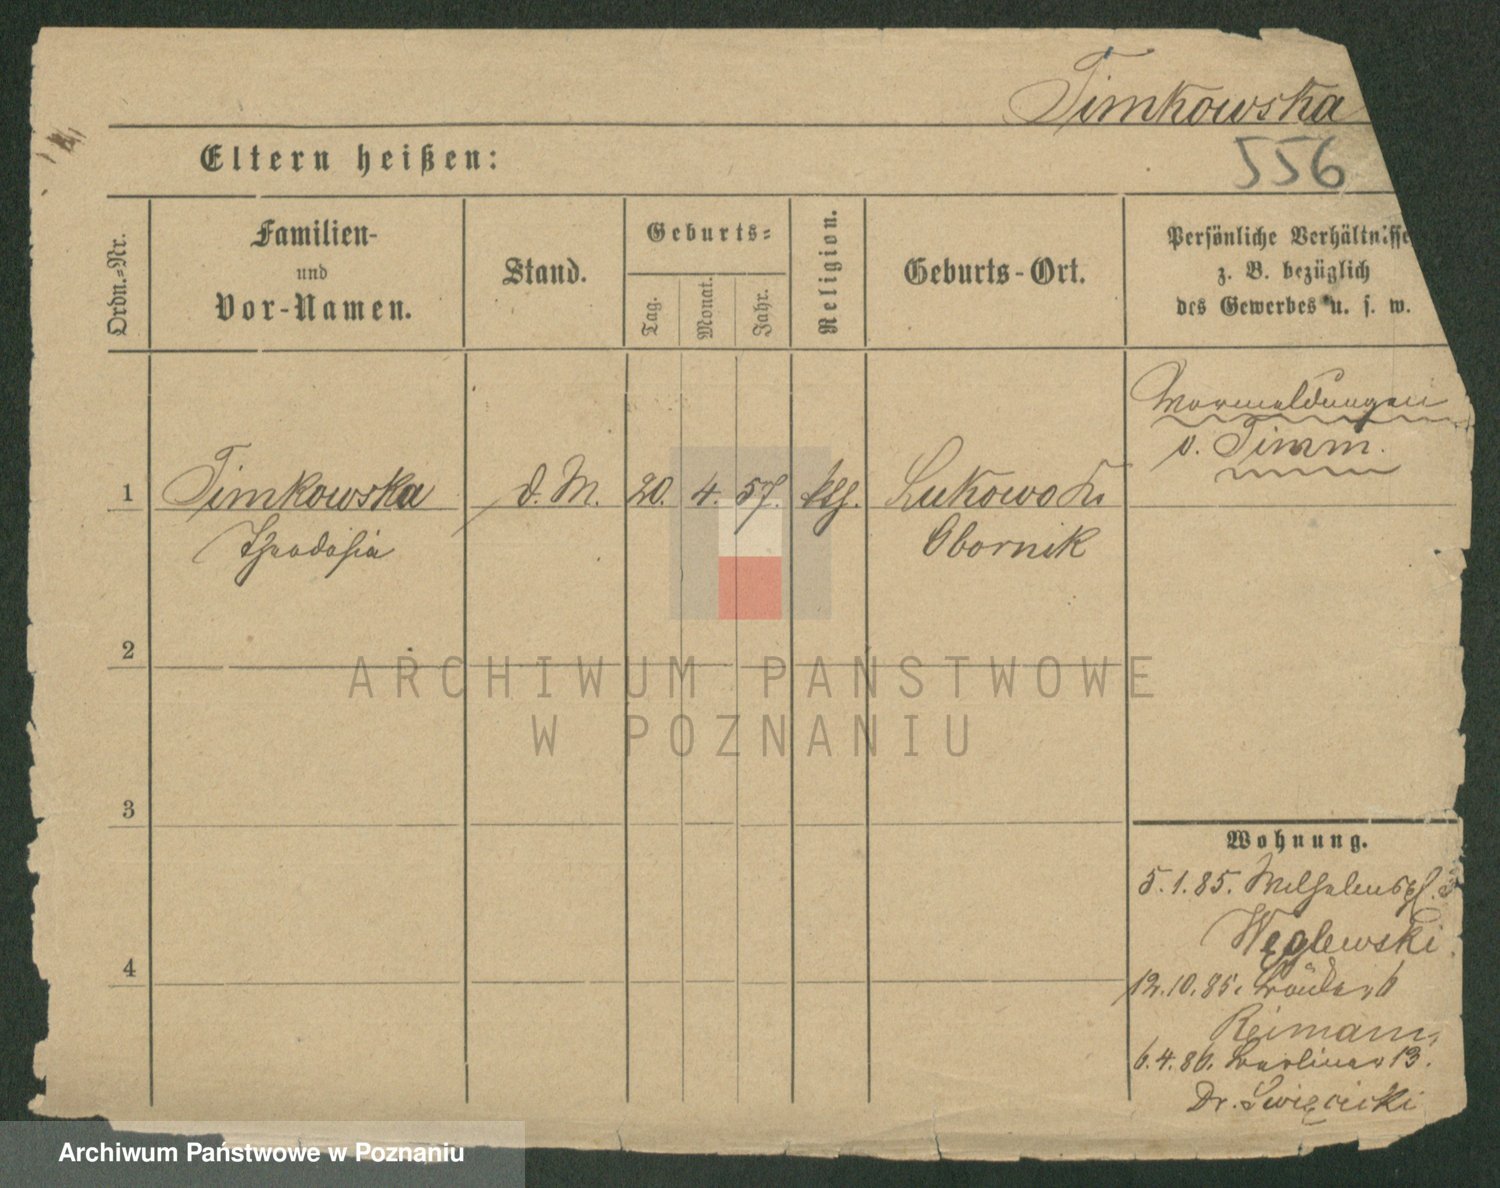 Timkowska
556
Eltern heißen:
Ordn.=Nr.
Familien-
und
Vor-Namen.
Stand.
Geburts=
Tag.
Monat.
Jahr.
Religion.
Geburts-Ort.
Persönliche Verhältnisse
z. B. bezüglich
des Gewerbes u. s. w.
Vormeldungen
v. Timm.
1 Timkowska d. M. 20. 4. 57. ktlh. Lukowo Kr.
Theodosia Obornik
2
3
4
Wohnung.
5.1.85. Wilhelmspl. 3
Węglewski.
12.10.85. Bäcker 6
Reimann,
6.4.86. Berliner 13.
Dr. Święcicki
ARCHIWUM PAŃSTWOWE
W POZNANIU
Archiwum Państwowe w Poznaniu